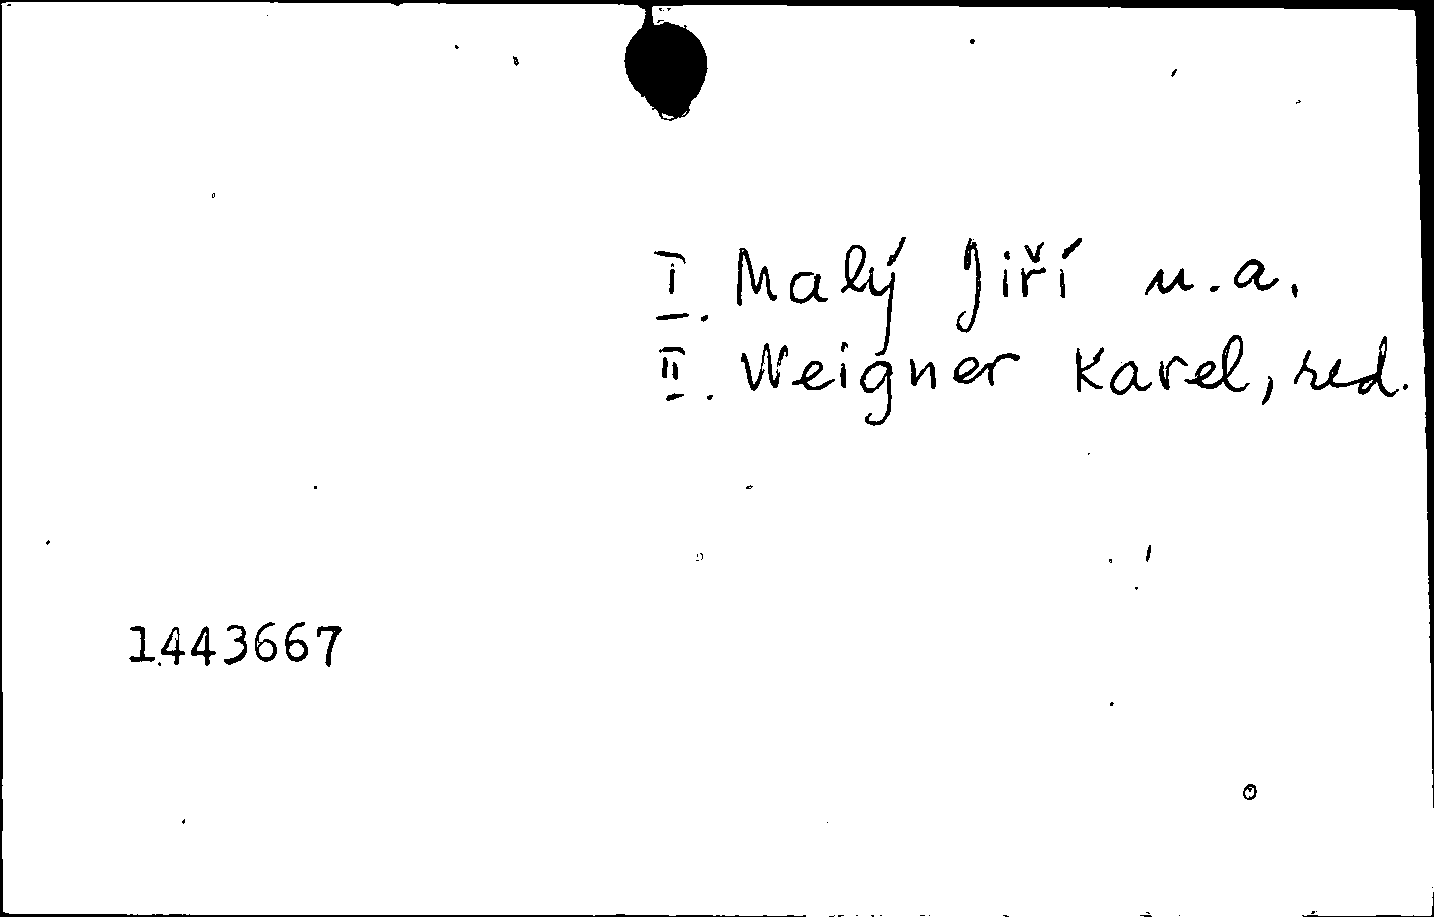 I. Malý Jiří u.a.
II. Weigner Karel, red.
1443667